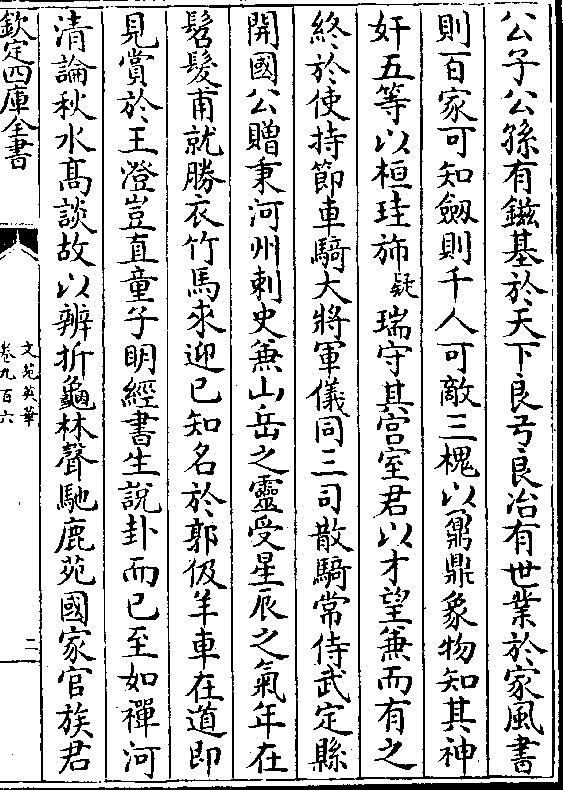 公子公孫有鎡基於天下良弓良冶有世業於家風書
則百家可知劔則千人可敵三槐以鼐鼎象物知其神
奸五等以桓珪疏瑞守其宫室君以才望兼而有之
終於使持節車騎大將軍儀同三司散騎常侍武定縣
開國公贈秉河州刺史兼山岳之靈受星辰之氣年在
髫髮甫就勝衣竹馬求迎已知名於郭伋羊車在道即
見賞於王澄豈直童子明經書生說卦而已至如禪河
清論秋水髙談故以辨折龜林聲馳鹿苑國家官族君
欽定四庫全書
文苑英華
卷九百六
二